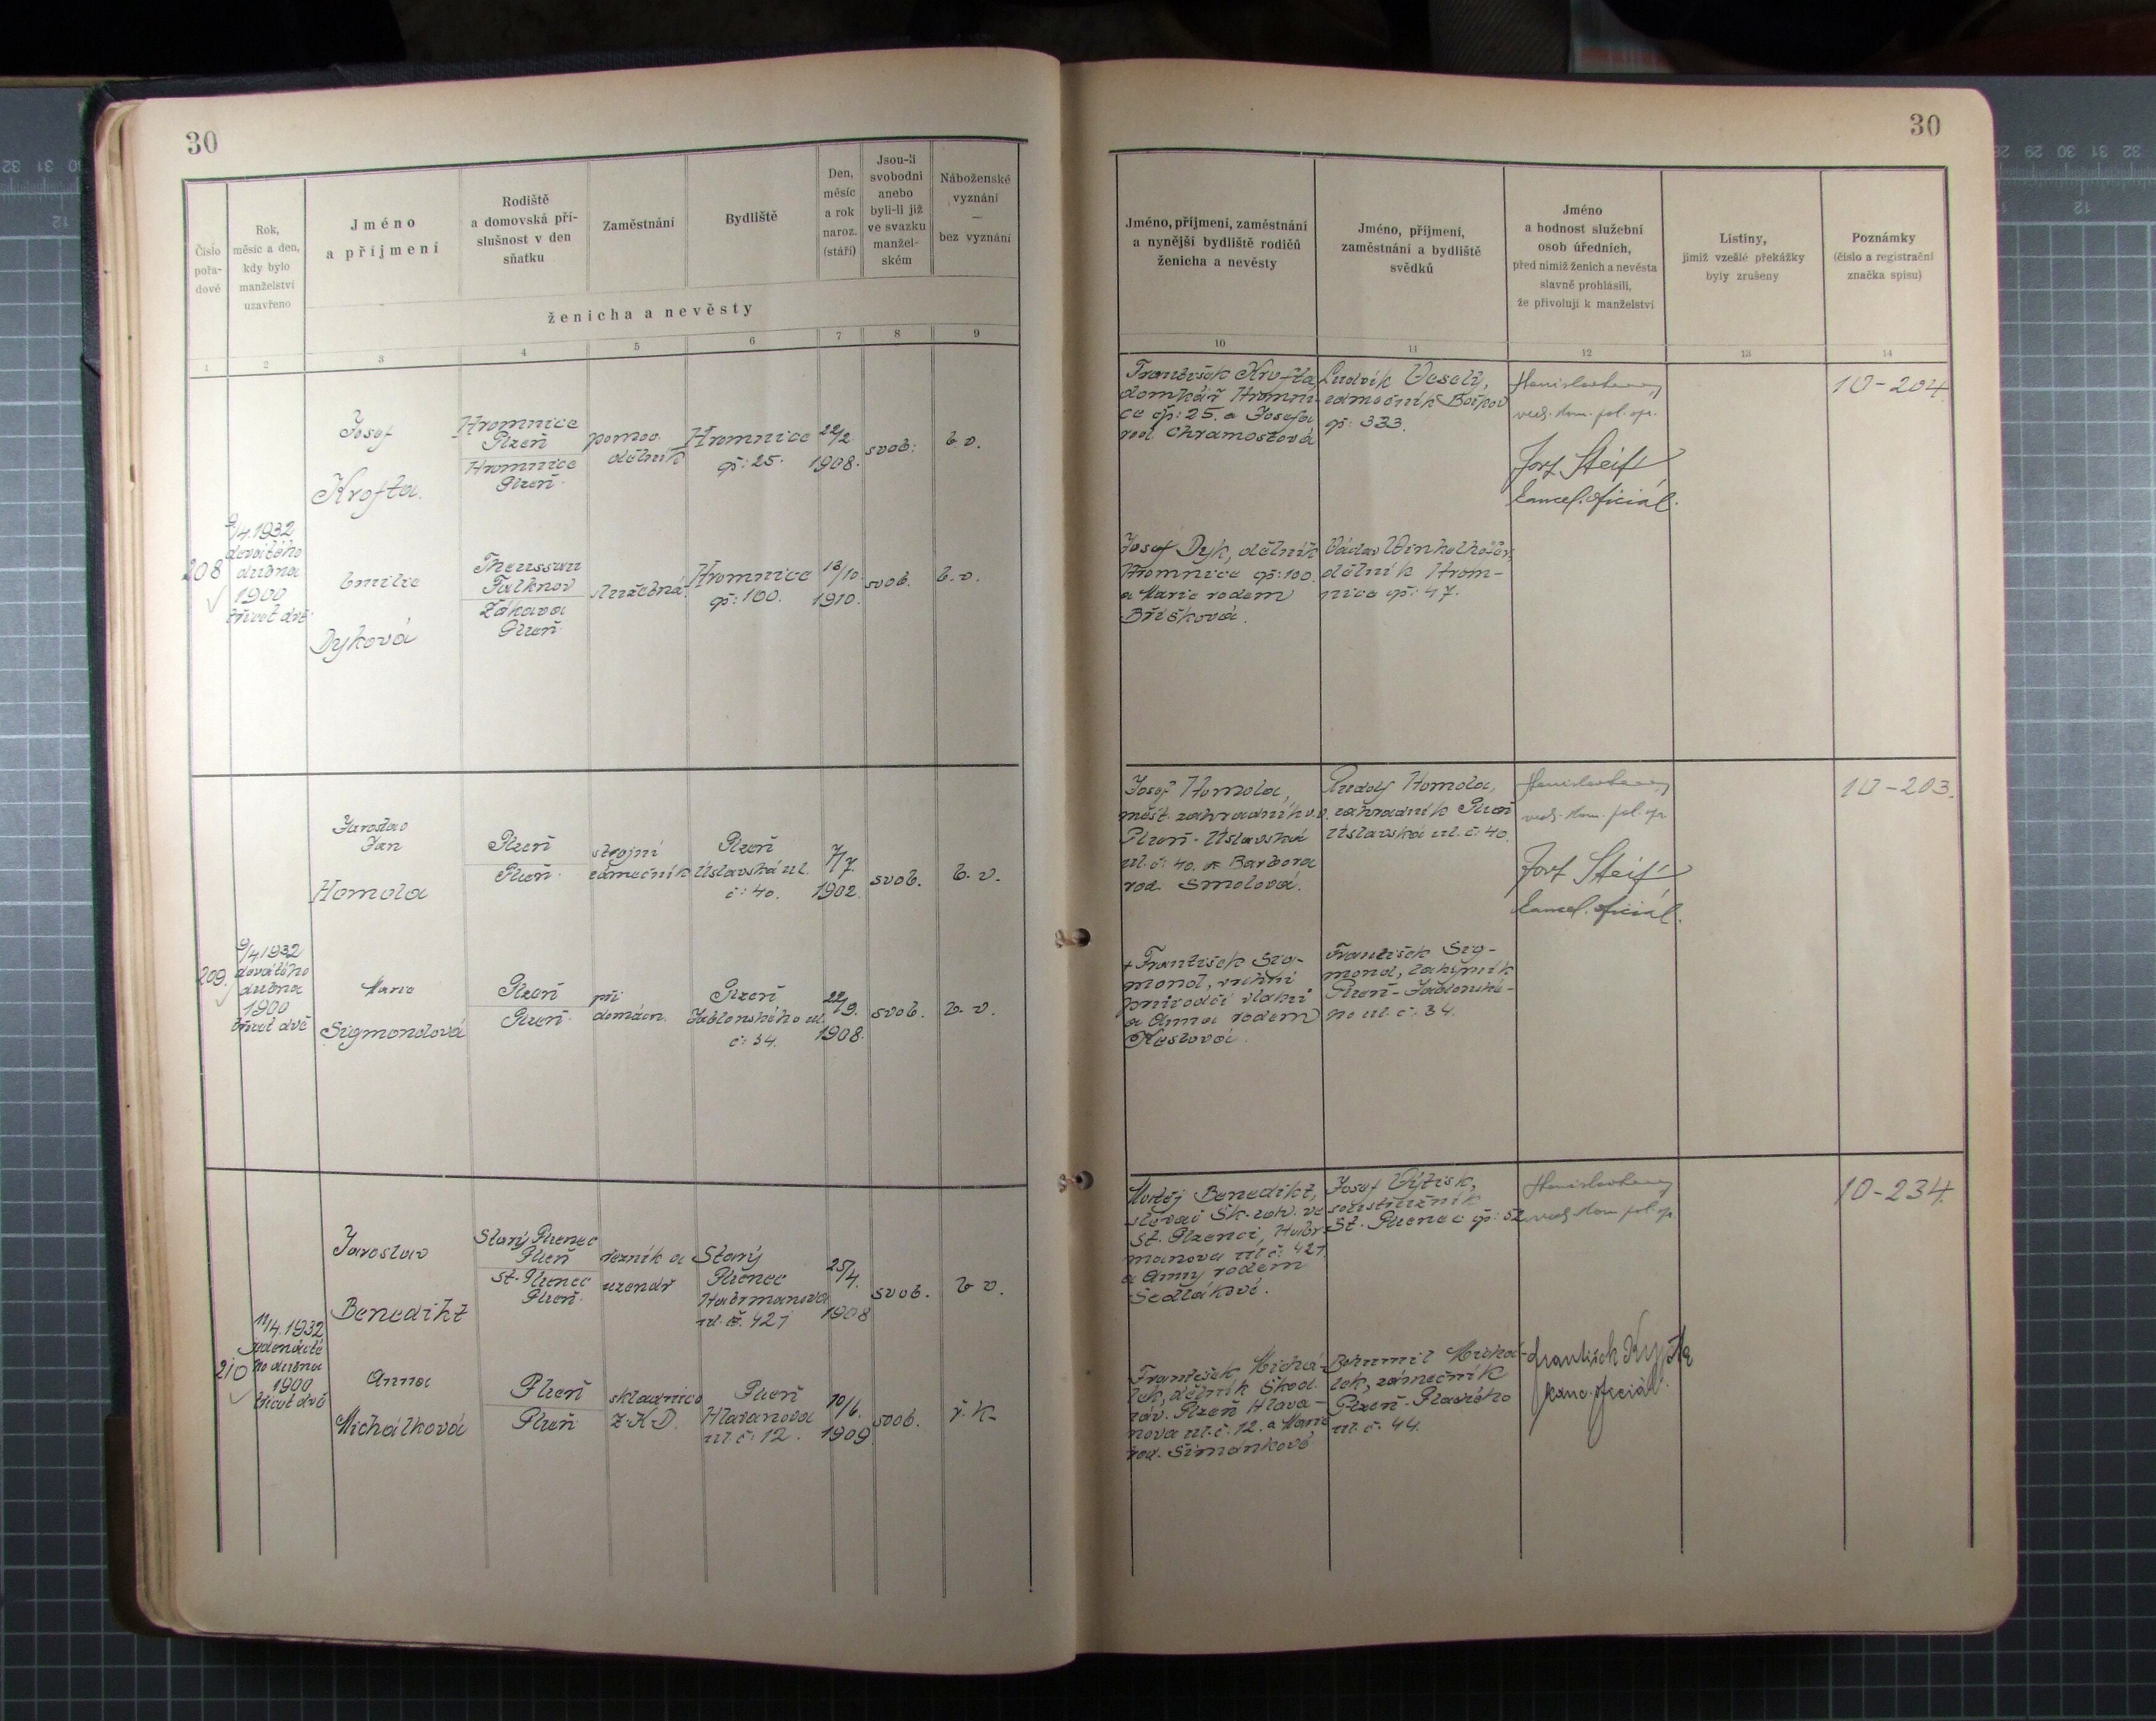 30
Číslo pořa-
dové
Rok,
měsíc a den,
kdy bylo
manželství
uzavřeno
Jméno
a příjmení
Rodiště
a domovská pří-
slušnost v den
sňatku
Zaměstnání
Bydliště
Den,
měsíc
a rok
naroz.
(stáří)
Jsou-li
svobodni
anebo
byli-li již
ve svazku
manžel-
ském
Náboženské
vyznání
—
bez vyznání
ženicha a nevěsty
1 2 3 4 5 6 7 8 9
208
9/4.1932
devátého
dubna
1900
třicet dvě
Josef
Krofta.
Hromnice
Plzeň
Hromnice
Plzeň.
pomoc.
dělník
Hromnice
čp: 25.
22/2.
1908.
svob:
b.v.
Emilie
Dyková
Theussau
Falknov
Žákava
Plzeň.
služebná
Hromnice
čp: 100.
1910.
svob.
b.v.
209.
9/4.1932
devátého
dubna
1900
třicet dvě
Jaroslav
Jan
Homola
Plzeň
Plzeň.
strojní
zámečník
Plzeň
Úslavská ul.
č: 40.
7/7.
1902.
svob.
b.v.
Marie
Sigmondová
Plzeň
Plzeň.
při
domácn.
Plzeň
Jablonského ul.
č: 34.
22/9.
1908.
svob.
b.v.
210
11/4.1932
jedenácté
ho dubna
1900
třicet dvě
Jaroslav
Benedikt
Starý Plzenec
Plzeň
St. Plzenec
Plzeň.
řezník a
uzenář
Starý
Plzenec
Habrmanova
ul. č. 421
25/4.
1908
svob.
b.v.
Anna
Michálková
Plzeň
Plzeň
skladnice
Z.K.D.
Plzeň
Hlavanova
ul. č: 12.
10/6.
1909
svob.
ř.k.
30
Jméno, příjmení, zaměstnání
a nynější bydliště rodičů
ženicha a nevěsty
Jméno, příjmení,
zaměstnání a bydliště
svědků
Jméno
a hodnost služební
osob úředních,
před nimiž ženich a nevěsta
slavně prohlásili,
že přivolují k manželství
Listiny,
jimiž vzešlé překážky
byly zrušeny
Poznámky
(číslo a registrační
značka spisu)
10 11 12 13 14
František Krofta,
domkář Hromni-
ce čp: 25. a Josefa
rod. Chramostová
Ludvík Veselý,
zámečník Bolevec
čp: 333.
Josef Steif
kancel. oficiál.
10-204.
Josef Dyk, dělník
Hromnice čp: 100.
a Marie rodem
Bříšková.
Václav
dělník Hrom-
nice čp: 47.
Josef Homola,
měst. zahradník v.v.
Plzeň-Úslavská
ul. č: 40. a Barbora
rod. Smolová.
Rudolf Homola,
zahradník Plzeň
Úslavská ul. č: 40.
Josef Steif
kancel. oficiál.
10-203.
+ František Sig-
mond, vrchní
průvodčí vlaků
a Anna rodem
František Sig-
mond,
Plzeň-Jablonské-
ho ul. č: 34.
Matěj Benedikt,
slévač Šk. záv. ve
St. Plzenci, Habr-
manova ul. č: 421
a Anny rodem
Sedlákové.
Josef Výtisk,
soustružník
St. Plzenec čp: 52
10-234.
František Michá-
lek, dělník Škod.
záv. Plzeň Hlava-
nova ul. č. 12. a Marie
rod. Šimánkové
Bohumil Michá-
lek, zámečník
Plzeň-
ul. č: 44.
František
kanc. oficiál.